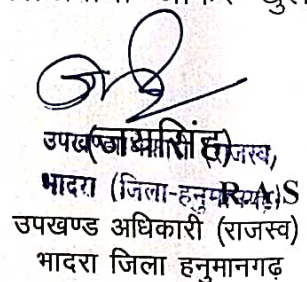 (जयसिंह)
उपखण्ड अधिकारी (राजस्व)
भादरा (जिला-हनुमानगढ़)
R.A.S
उपखण्ड अधिकारी (राजस्व)
भादरा जिला हनुमानगढ़